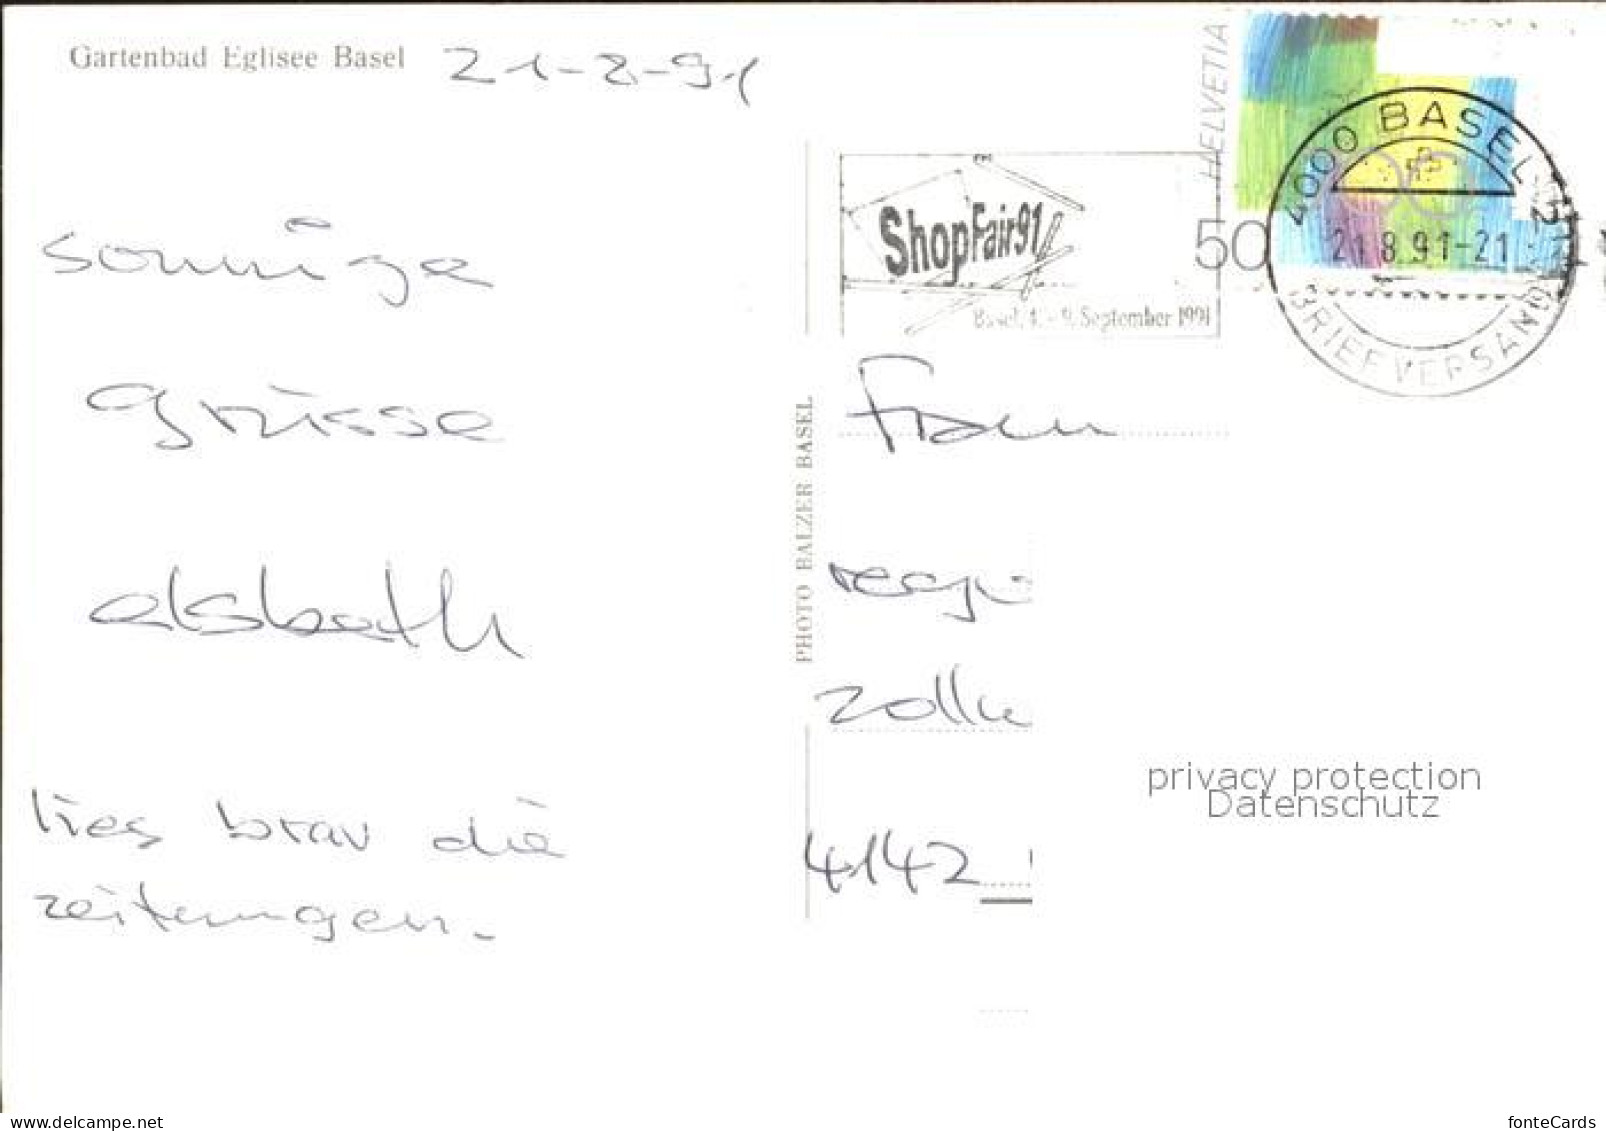 Gartenbad Eglisee Basel
21-8-91
sonnige
grüsse
elsbeth
lies brav die
zeitungen.
PHOTO BALZER BASEL
HELVETIA
50
4000 BASEL 2
21.8.91-21
BRIEFVERSAND
ShopFair91
Basel, 1. - 9. September 1991
Frau
4142
privacy protection
Datenschutz
www.delcampe.net
fonteCards